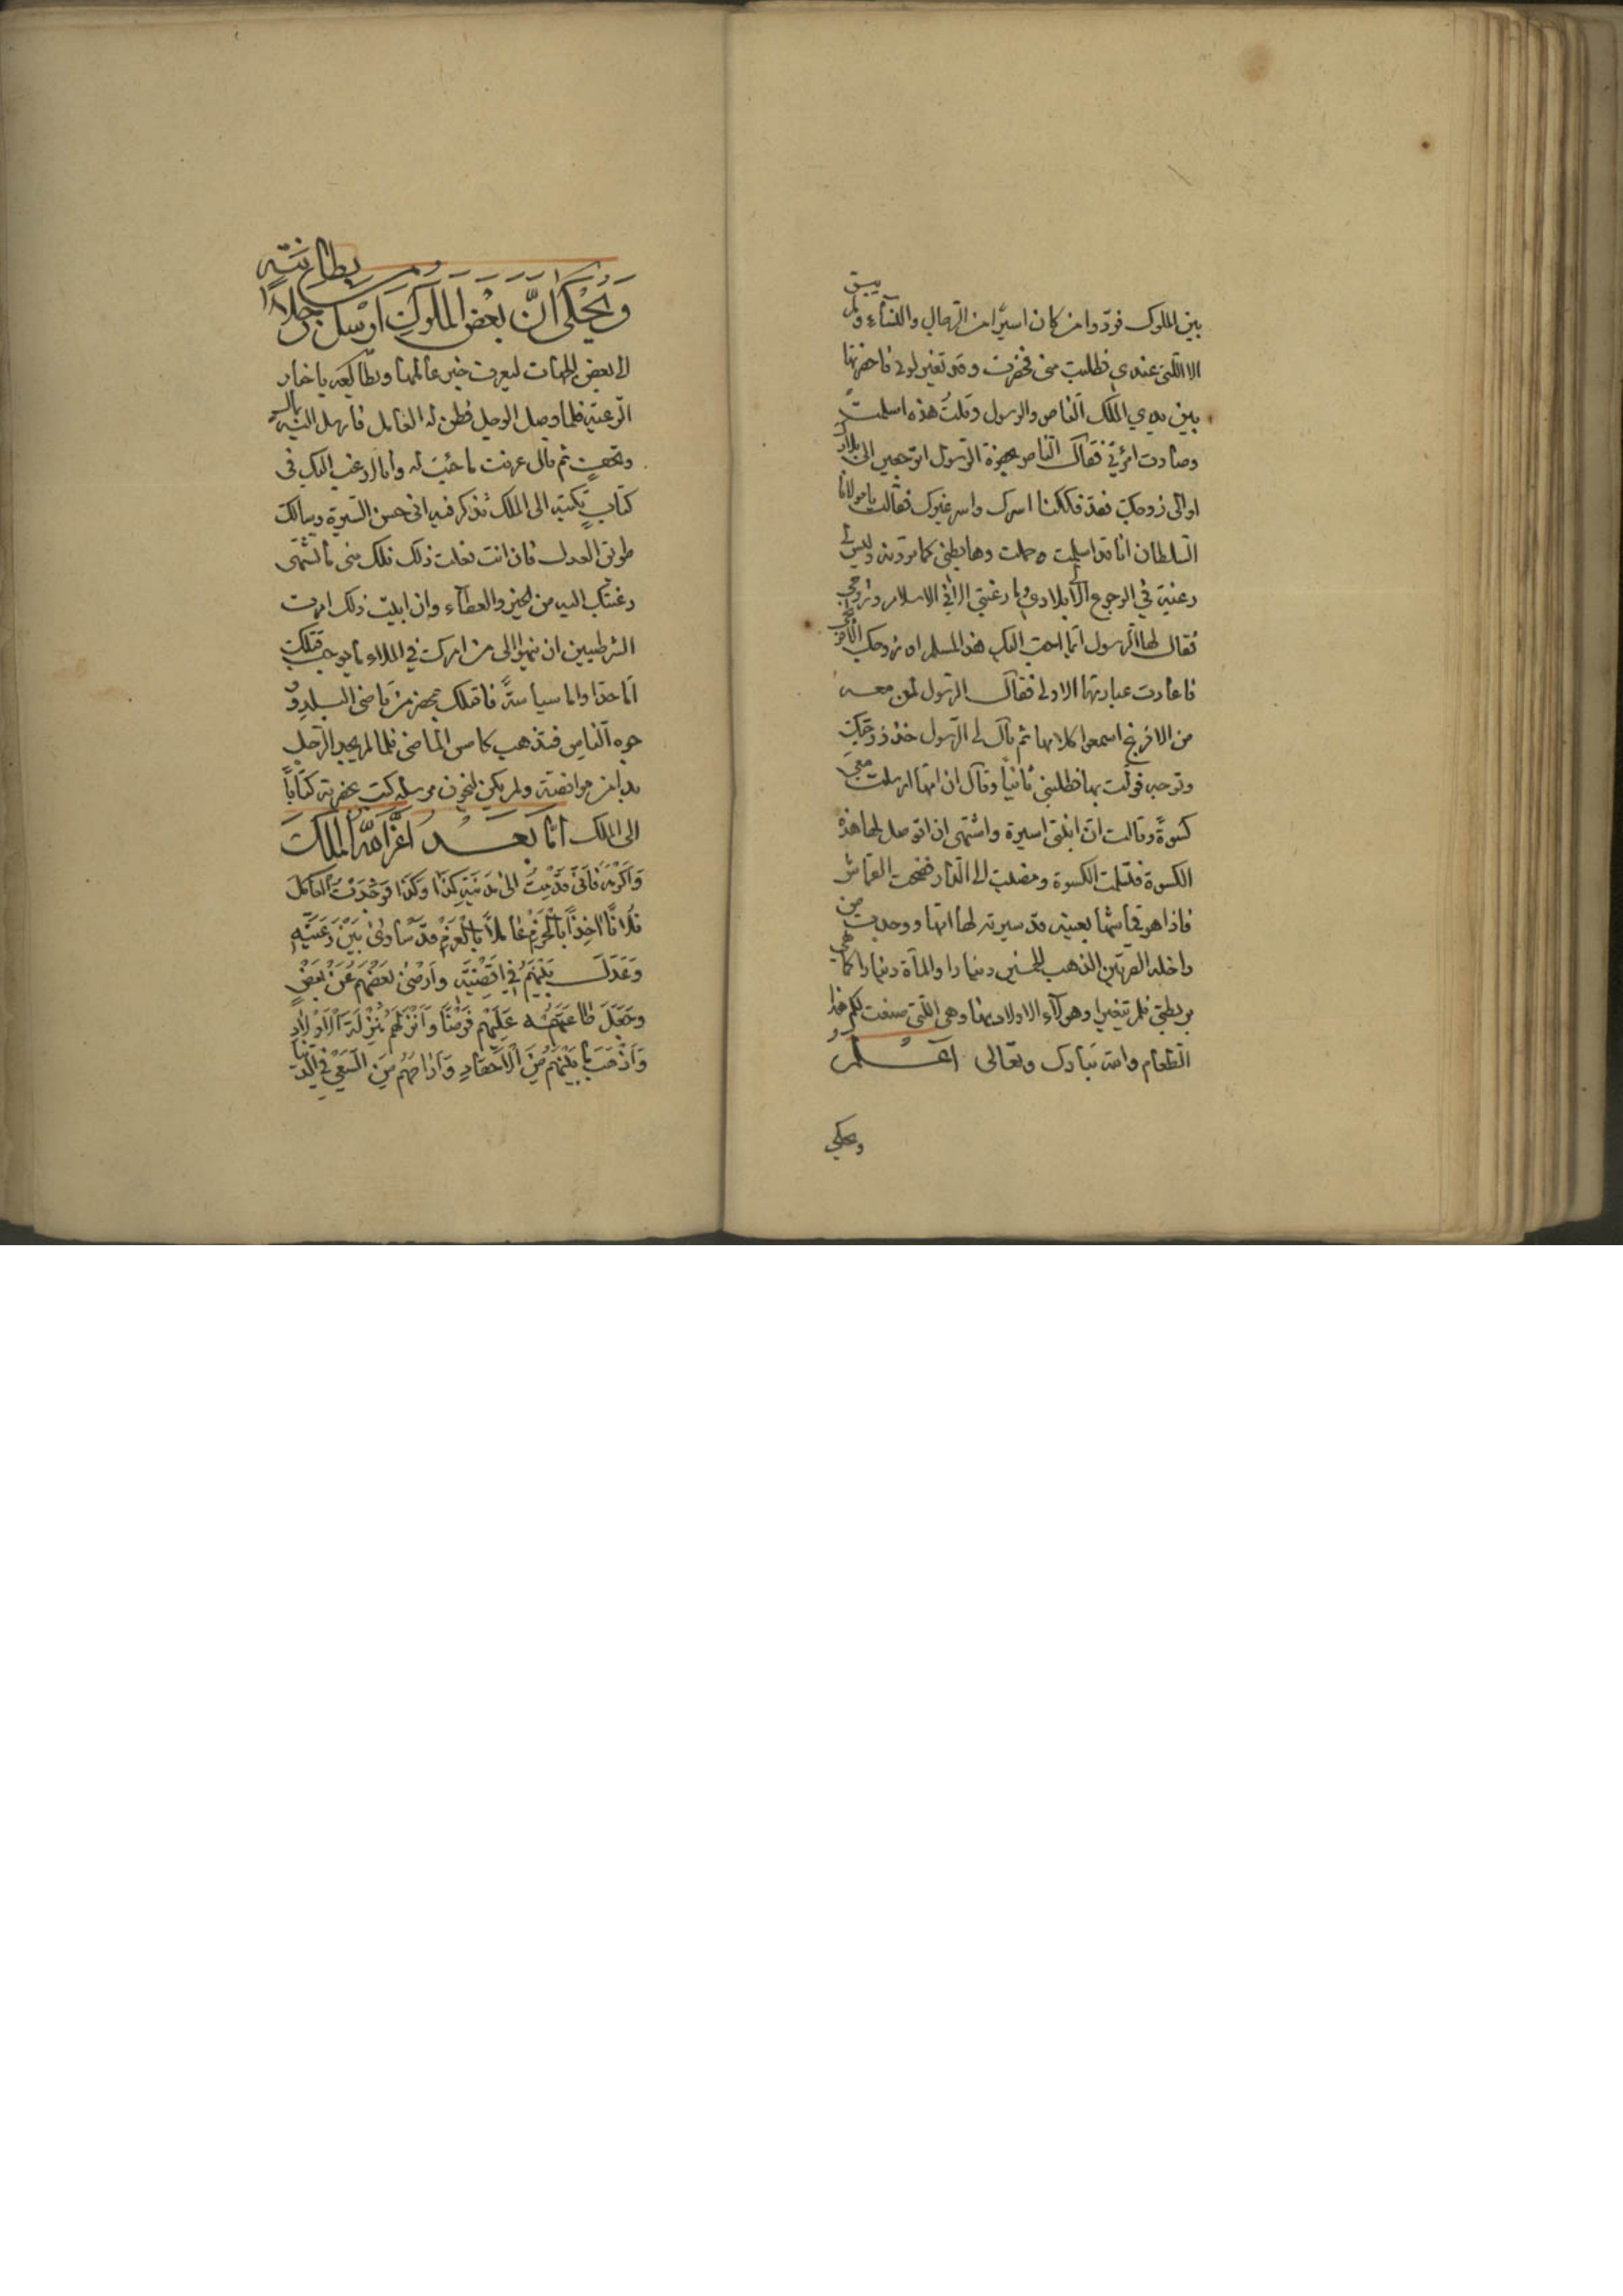 بين الملوك فردوا من كان اسيرًا من الرجال والنسآء ولم يبق
الا اللتى عندي فطلبت منى فحضرت وقد تغير لونى فاحضرتها
بين يدي الملك الناصر والرسول وقلتُ هذه اسلمت
وصارت امرأتي فقال الناصر بحضرة الرسول اترجعين الى بلادك
او الى زوجك فقد فككنا اسرك واسر غيرك فقالت يا مولانا
السلطان انا قد اسلمت وحملت وها بطنى كما ترونه وليس لى
رغبة في الرجوع الى بلادي وما رغبتى الا في الاسلام وزوجي
فقال لها الرسول ايما احب اليك هذا المسلم او زوجك الافرنجى
فاعادت عبارتها الاولى فقال الرسول لمن معه
من الافرنج اسمعوا كلامها ثم قال لى الرسول خذ زوجتك
وتوجه فوليت بها فطلبنى ثانيًا وقال ان امها ارسلت معى
كسوة وقالت ان ابنتى اسيرة واشتهى ان توصل لها هذه
الكسوة فتسلمت الكسوة ومضيت الى الدار ففتحت القماش
فاذا هو قماشها بعينه قد سيرته لها امها ووجدت من
داخله الصرتين الذهب الخمسين دينارا والمأة دينارا كما هى
بربطتى فلم تتغير وهولآء الاولاد منها وهى اللتى صنعت لكم هذا
الطعام والله تبارك وتعالى اعلم
ويحكى
ويُحْكَى انَّ بَعْضَ المُلُوكِ ارْسَلَ رجلاً من بطانته
الى بعض الجهات ليعرف خبر عاملها ويطالعه باخبار
الرعية فلما وصل الرجل فطن له العامل فارسل اليه بالبر
والتحف ثم قال عرفت ما جئت له وانا ارغب اليك فى
كتابٍ تكتبه الى الملك تذكر فيه انى حسن السيرة وسالك
طريق العدل فان انت فعلت ذلك فلك منى ما تشتهى
رغبتك اليه من الخير والعطآء وان ابيت ذلك امرت
الشرطيين ان ينهوا الى من امرك في الملاء ما يوجب قتلك
اما حدا واما سياسةً فاقتلك بمحضر من قاضى البلد و
جوه الناس فتذهب كامس الماضى فلما لم يجد الرجل
بدا من موافقته ولم يكن ليخون مرسله كتب بحضرته كتابًا
الى الملك امّا بَعْدُ اعَزَّ اللّٰهُ المَلِكَ
وَاَكْرَمَهُ فَاَنّى قَدِمْتُ الىٰ مَدِينَةِ كَذَا وكَذَا فَوَجَدْتُ الْعَامِلَ
فُلَانًا اخِذًا بِالْحَزْمِ عَامِلاً بِالْعَزْمِ قَدْ سَاوىٰ بَيْنَ رَعِيَّتِهِ
وَعَدَلَ بَيْنَهُمْ فى اَقْضِيَتِهِ وَارْضىٰ بَعْضَهُمْ عَنْ بَعْضٍ
وجَعَلَ طَاعَتَهُ عَلَيْهِمْ فَرْضًا وَاَنْزَلَهُمْ مَنْزِلَةَ الْاَوْلَادِ
وَاَذْهَبَ مَا بَيْنَهُمْ مِنَ الْاَحْقَادِ وَاَرَاحَهُمْ مِنَ السَّعْىِ فى الدنيا